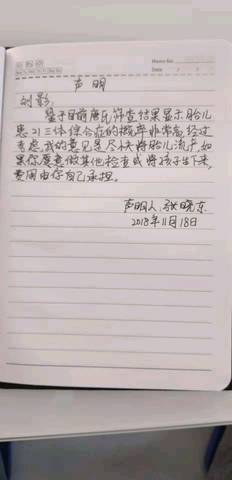 Memo No.
Date / /
声明
刘影:
鉴于目前唐氏筛查结果显示胎儿
患21三体综合症的概率非常高,经过
考虑,我的意见是尽快将胎儿流产,如
果你愿意做其他检查或将孩子生下来,
费用由你自己承担。
声明人:张晓东
2018年11月18日